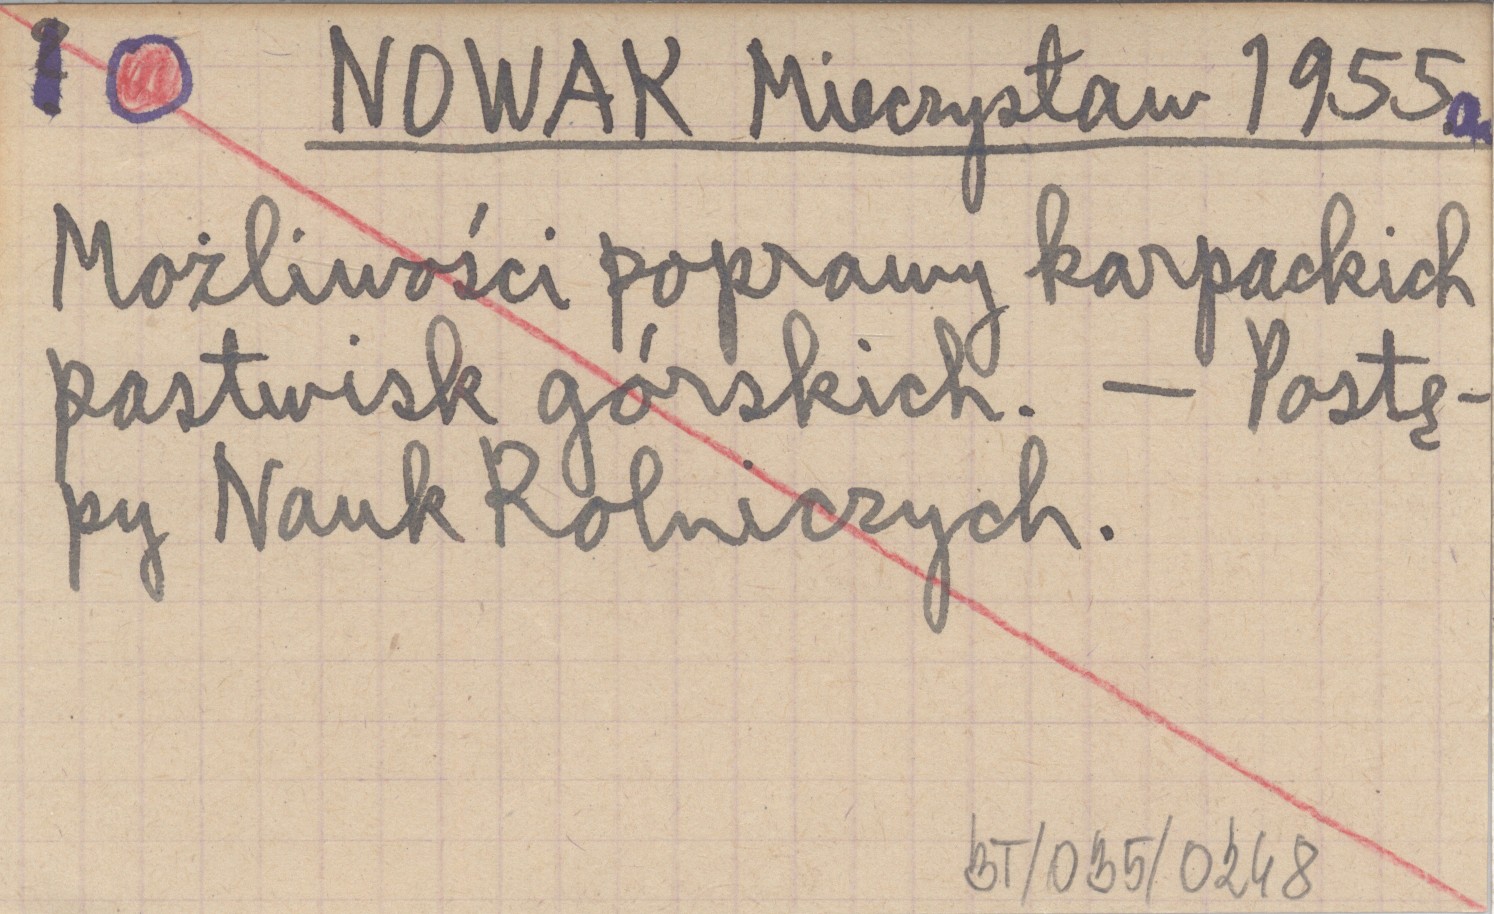 1 NOWAK Mieczysław 1955a.
Możliwości poprawy karpackich
pastwisk górskich. — Postę-
py Nauk Rolniczych.
BT/035/0248